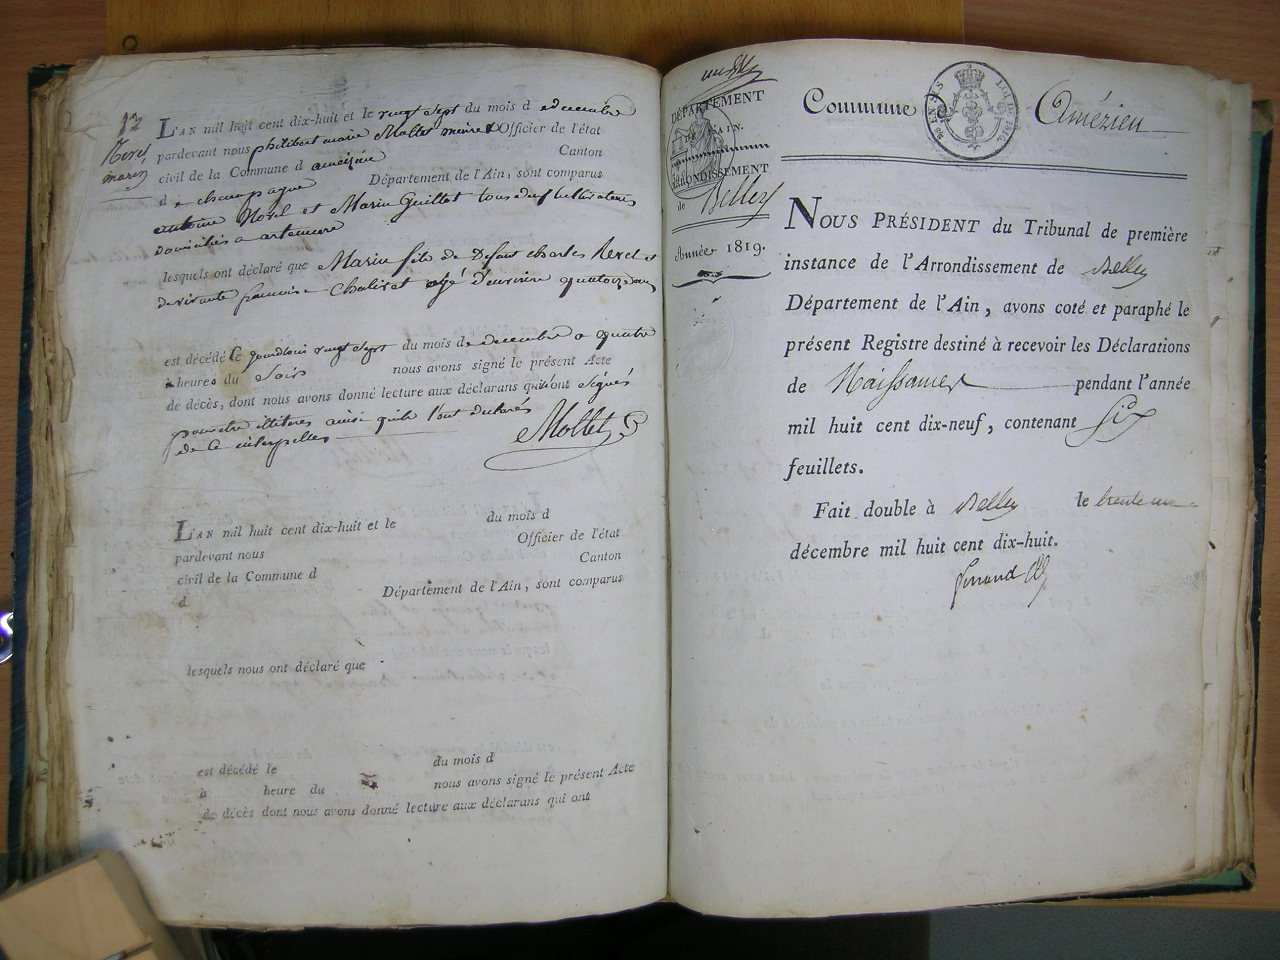 12
marin
L'AN mil huit cent dix-huit et le vingt sept du mois d edecembre
pardevant nous philibert marie Mollet maire Officier de l'état
civil de la Commune d ameizin Canton
d e champagne Département de l'Ain, sont comparus
antoine et Marin Guillet tous deux
domiciliés a artemare
lesquels ont déclaré que Marin fils de Defunt charles et
de vivante Chalivet agé d'environ quatorze ans
est décédé Ce vingt sept du mois de decembre a quatre
heures du Soir nous avons signé le présent Acte
de décès, dont nous avons donné lecture aux déclarans qui ont
pour etre illiteres ainsi quils l'ont declarés
de Ce interpelles
Mollet
L'AN mil huit cent dix-huit et le du mois d
pardevant nous Officier de l'état
civil de la Commune d Canton
d Département de l'Ain, sont comparus
lesquels nous ont déclaré que
est décédé le du mois d
à heure du nous avons signé le présent Acte
de décès dont nous avons donné lecture aux déclarans qui ont
DÉPARTEMENT
AIN.
ARRONDISSEMENT
de Belley
Année 1819.
Commune Amézieu
NOUS PRÉSIDENT du Tribunal de première
instance de l'Arrondissement de Belley
Département de l'Ain, avons coté et paraphé le
présent Registre destiné à recevoir les Déclarations
de Naissances pendant l'année
mil huit cent dix-neuf, contenant Six
feuillets.
Fait double à Belley le trente un
décembre mil huit cent dix-huit.